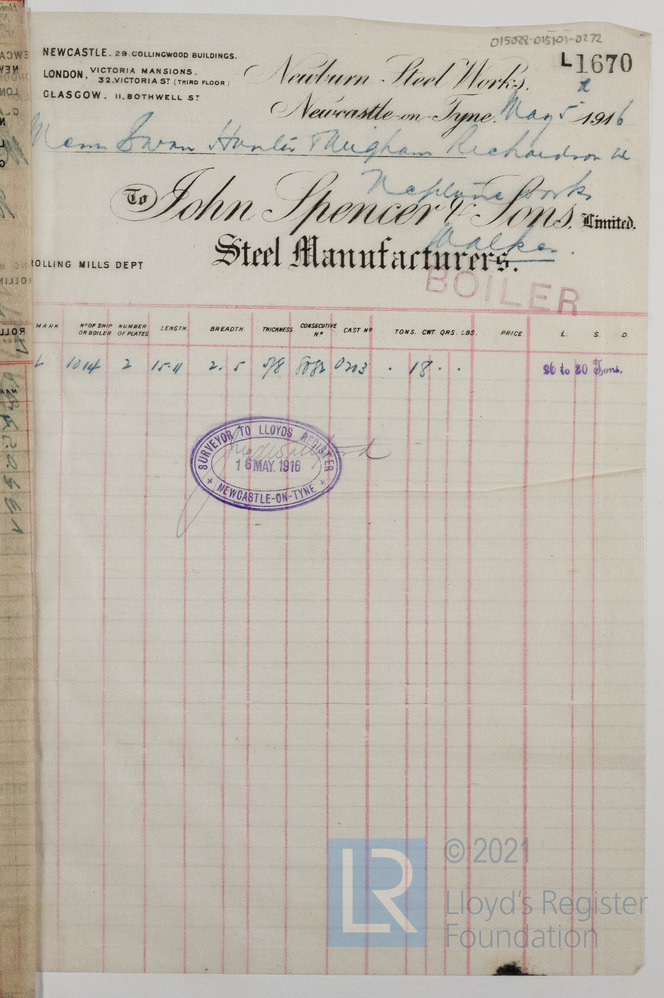 015022-015101-0272
NEWCASTLE. 29. COLLINGWOOD BUILDINGS.
L1670
LONDON, VICTORIA MANSIONS. 32. VICTORIA ST (THIRD FLOOR)
GLASGOW. 11, BOTHWELL ST
Newburn Steel Works.
Newcastle-on-Tyne, May 5 1916
Swan Hunter & Wigham Richardson Ld
Neptune Works
Walker.
To John Spencer & Sons, Limited.
Steel Manufacturers.
ROLLING MILLS DEPT
BOILER
MARK Nº OF SHIP OR BOILER NUMBER OF PLATES LENGTH BREADTH. THICKNESS CONSECUTIVE Nº CAST Nº TONS. CWT. QRS. LBS. PRICE L. S. D.
L 1014 2 15-11 2.5 5/8 8082 0203 . 18 . . 26 to 30 Tons.
SURVEYOR TO LLOYDS REGISTER
16 MAY. 1916
NEWCASTLE-ON-TYNE
LR
© 2021
Lloyd's Register
Foundation